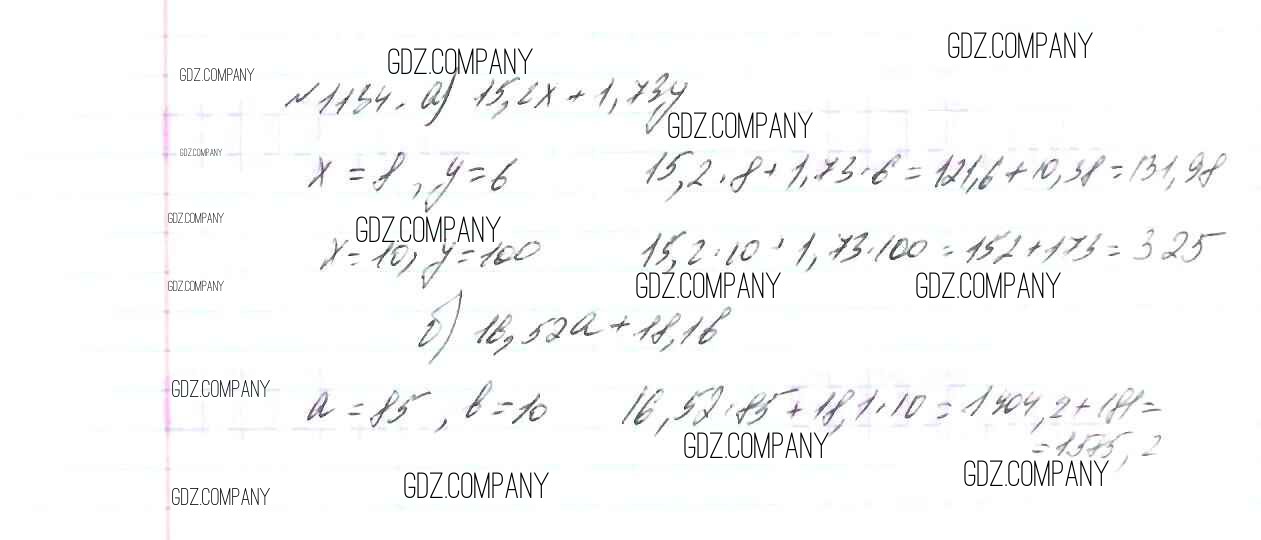 GDZ.COMPANY
GDZ.COMPANY
GDZ.COMPANY
№1134. а) 15,2x + 1,73y
GDZ.COMPANY
GDZ.COMPANY
x = 8, y = 6 15,2·8 + 1,73·6 = 121,6 + 10,38 = 131,98
GDZ.COMPANY
GDZ.COMPANY
x = 10, y = 100 15,2·10 + 1,73·100 = 152 + 173 = 325
GDZ.COMPANY
GDZ.COMPANY
GDZ.COMPANY
б) 16,52a + 18,1b
GDZ.COMPANY
a = 85, b = 10 16,52·85 + 18,1·10 = 1404,2 + 181 =
= 1575,2
GDZ.COMPANY
GDZ.COMPANY
GDZ.COMPANY
GDZ.COMPANY